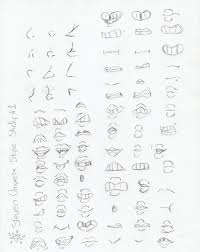 Steven Universe Style Study #1